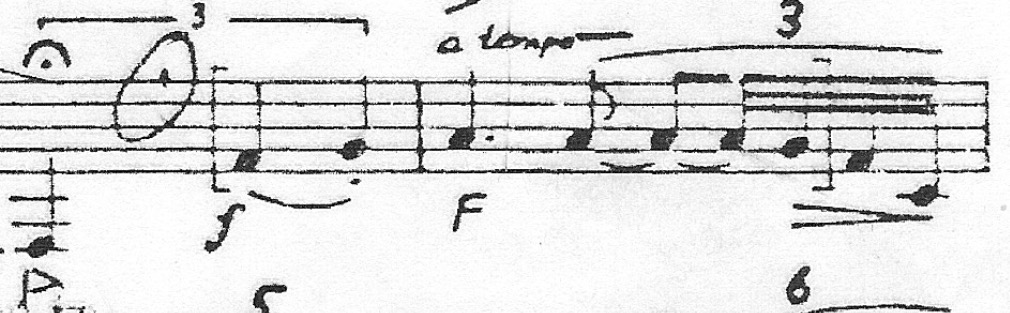 3
a tempo
3
f
F
5
6